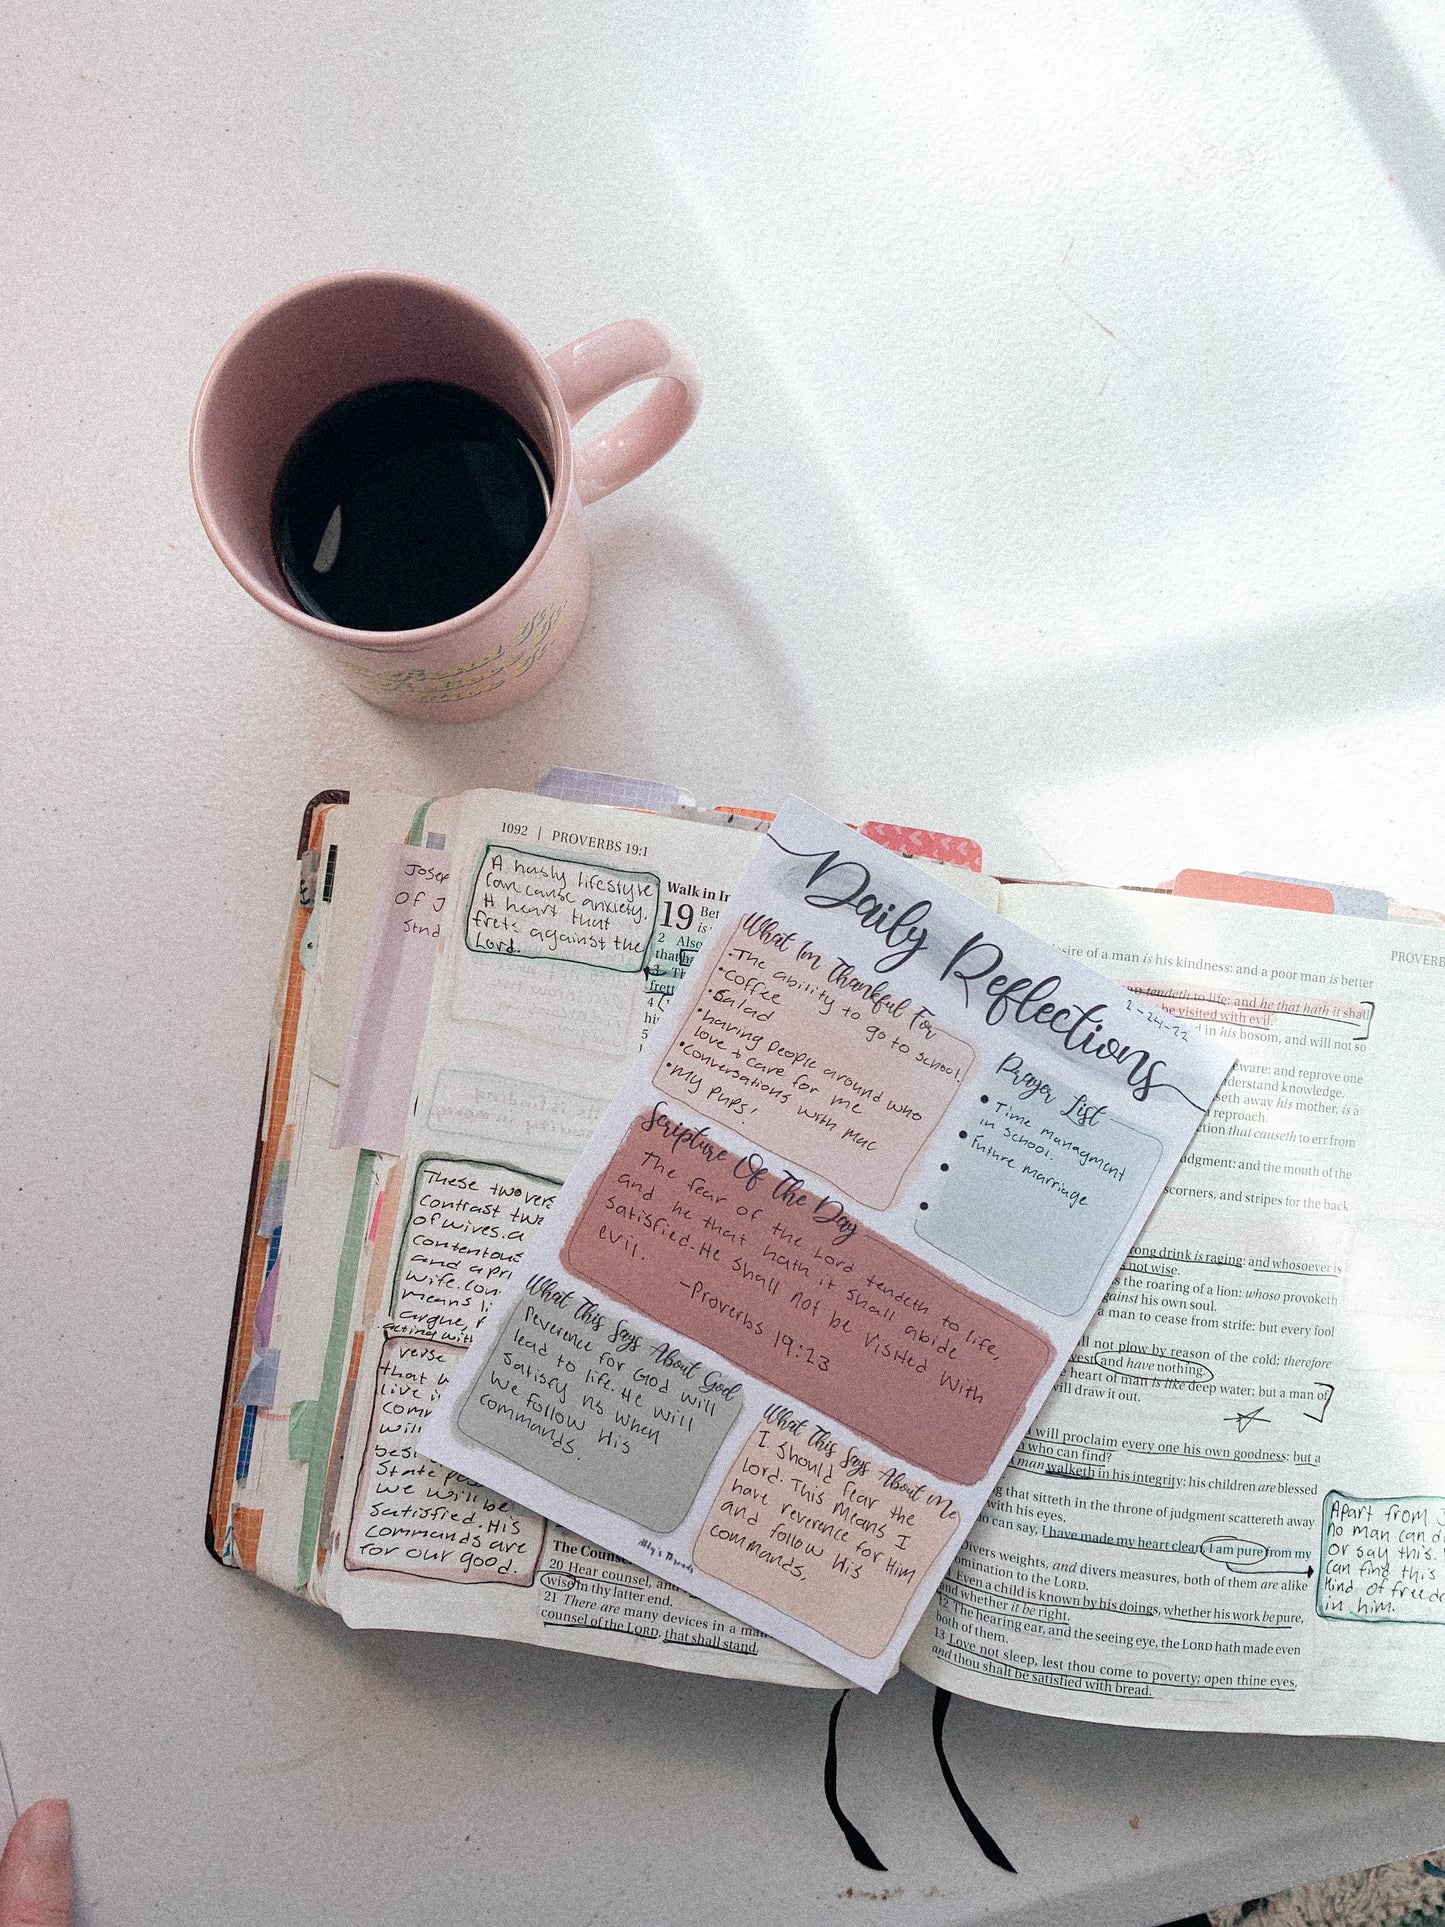 1092 | PROVERBS 19:1
A hasty lifestyle
can cause anxiety.
A heart that
frets against the
Lord.
Walk in
19
2 Also
that
frett
4
hi
5
Josep
of J
These two vers
contrast tw
of wives. a
contentous
and a pri
wife. Con
means li
argue,
acting with
verse
that w
live i
comm
will
bes
State
we will be
satisfied. His
commands are
for our good.
The Counse
20 Hear counsel, and
wise in thy latter end.
21 There are many devices in a ma
counsel of the LORD, that shall stand.
Daily Reflections
2-24-22
What Im Thankful For
• The ability to go to school.
• coffee
• Salad
• having people around who
love + care for me
• conversations with mac
• MY PUPS!
Prayer List
• Time managment
in school.
• future marriage
Scripture Of The Day
The fear of the Lord tendeth to life,
and he that hath it shall abide
satisfied. He shall not be visited with
evil.
-Proverbs 19:23
What This Says About God
reverence for God will
lead to life. He will
satisfy us when
we follow His
commands.
What This Says About Me
I should fear the
lord. This means I
have reverence for Him
and follow His
commands.
Abby's Threads
PROVERB
esire of a man is his kindness: and a poor man is better
tendeth to life: and he that hath it shall
be visited with evil.
in his bosom, and will not so
eware: and reprove one
derstand knowledge.
seth away his mother, is a
reproach.
ction that causeth to err from
udgment: and the mouth of the
scorners, and stripes for the back
rong drink is raging: and whosoever is
not wise.
s the roaring of a lion: whoso provoketh
gainst his own soul.
a man to cease from strife: but every fool
ill not plow by reason of the cold; therefore
vest and have nothing.
heart of man is like deep water; but a man of
will draw it out.
will proclaim every one his own goodness: but a
who can find?
man walketh in his integrity: his children are blessed
g that sitteth in the throne of judgment scattereth away
with his eyes.
o can say, I have made my heart clean, I am pure from my
Divers weights, and divers measures, both of them are alike
omination to the LORD.
Even a child is known by his doings, whether his work be pure,
and whether it be right.
12 The hearing ear, and the seeing eye, the LORD hath made even
both of them.
13 Love not sleep, lest thou come to poverty; open thine eyes,
and thou shalt be satisfied with bread.
Apart from J
no man can d
or say this.
can find this
kind of freedo
in him.